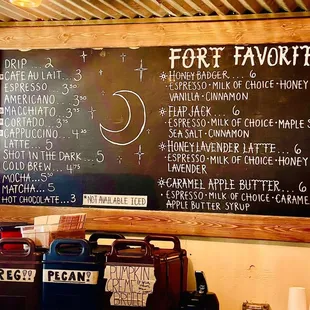 DRIP .. 2
CAFE AU LAIT .. 3
ESPRESSO .... 3
AMERICANO ... 3
MACCHIATO ... 3⁵⁰
CORTADO .... 3⁵⁰
CAPPUCCINO .. 4⁵⁰
LATTE .. 5
SHOT IN THE DARK .... 5
COLD BREW ... 5
MOCHA ... 5⁵⁰
MATCHA ... 5
HOT CHOCOLATE .. 3
*NOT AVAILABLE ICED
FORT FAVORIT
HONEY BADGER .... 6
ESPRESSO · MILK OF CHOICE · HONEY
VANILLA · CINNAMON
FLAP JACK .... 6
ESPRESSO · MILK OF CHOICE · MAPLE S
SEA SALT · CINNAMON
HONEY LAVENDER LATTE .. 6
ESPRESSO · MILK OF CHOICE · HONE
LAVENDER
CARAMEL APPLE BUTTER .... 6
ESPRESSO · MILK OF CHOICE · CARAME
APPLE BUTTER SYRUP
REG
PECAN
PUMPKIN
CREME